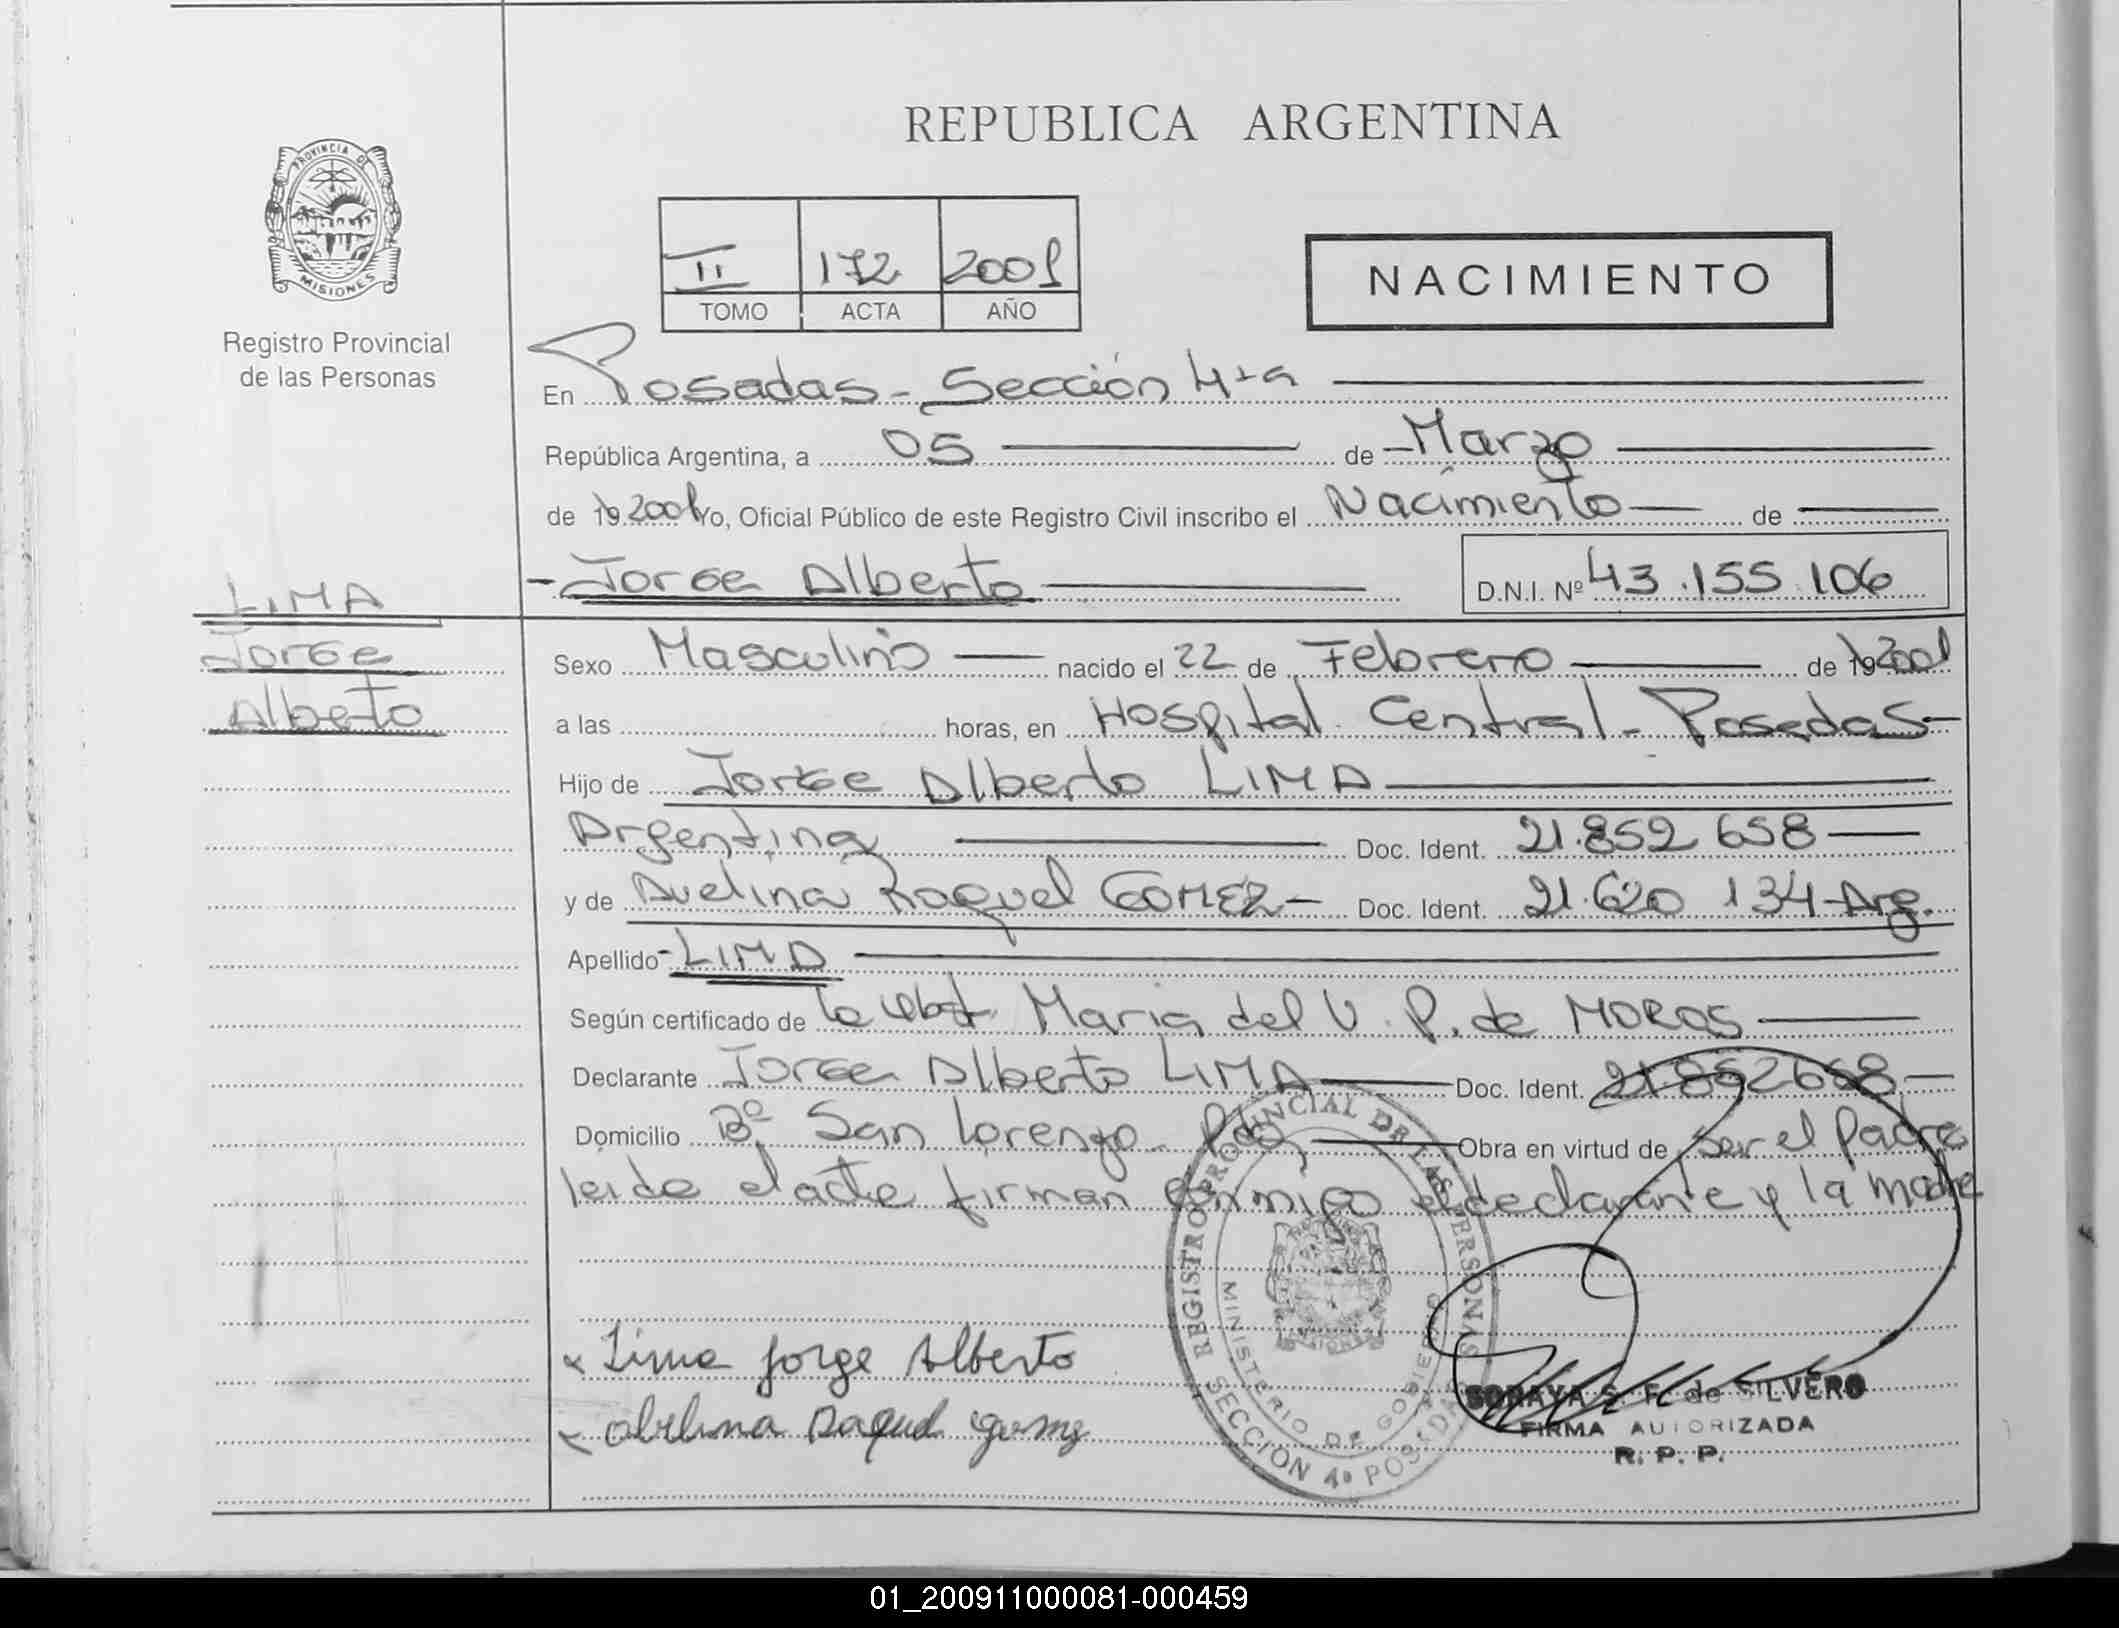 REPUBLICA ARGENTINA
PROVINCIA DE MISIONES
Registro Provincial
de las Personas
II 172 2001
TOMO ACTA AÑO
NACIMIENTO
En Posadas - Sección 4ta
República Argentina, a 05 de Marzo
de 19 2001 Yo, Oficial Público de este Registro Civil inscribo el Nacimiento de
- Jorge Alberto D.N.I. Nº 43.155.106
LIMA
Jorge
Alberto
Sexo Masculino nacido el 22 de Febrero de 19 2001
a las horas, en Hospital Central - Posadas -
Hijo de Jorge Alberto LIMA
Argentina Doc. Ident. 21.852 658
y de Avelina Raquel GOMEZ - Doc. Ident. 21.620 134 - Arg.
Apellido - LIMA
Según certificado de la Obst Maria del V. P. de MOROS
Declarante Jorge Alberto LIMA Doc. Ident. 21.852658
Domicilio Bº San Lorenzo - Pdas Obra en virtud de ser el Padre
leida el acta firman conmigo el declarante y la madre
Lima Jorge Alberto
Raquel
REGISTRO PROVINCIAL DE LAS PERSONAS
MINISTERIO DE GOBIERNO
SECCION 4º POSADAS
SORAYA S. F. de SILVERO
FIRMA AUTORIZADA
R. P. P.
01_200911000081-000459